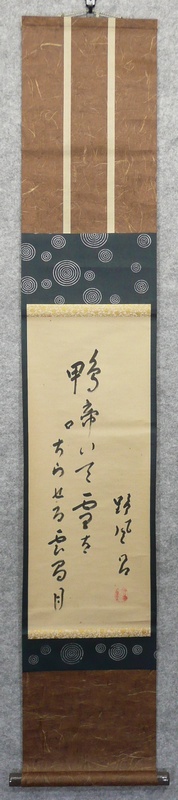 鴨啼いて雪を
ちらせる雲間月
野風呂